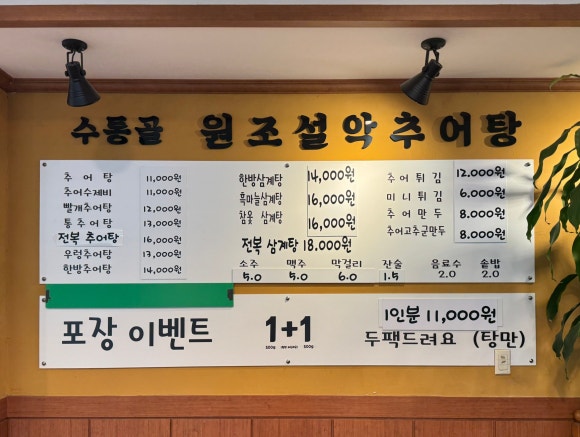 수통골 원조설악추어탕
추어탕 11,000원
추어수제비 11,000원
빨개추어탕 12,000원
통추어탕 13,000원
전복 추어탕 16,000원
우렁추어탕 13,000원
한방추어탕 14,000원
한방삼계탕 14,000원
흑마늘삼계탕 16,000원
참옻 삼계탕 16,000원
전복 삼계탕 18,000원
추어튀김 12,000원
미니튀김 6,000원
추어만두 8,000원
추어고추군만두 8,000원
소주 맥주 막걸리 잔술 음료수 솥밥
5.0 5.0 6.0 1.5 2.0 2.0
포장 이벤트 1+1 1인분 11,000원
500g 500g
두팩드려요 (탕만)